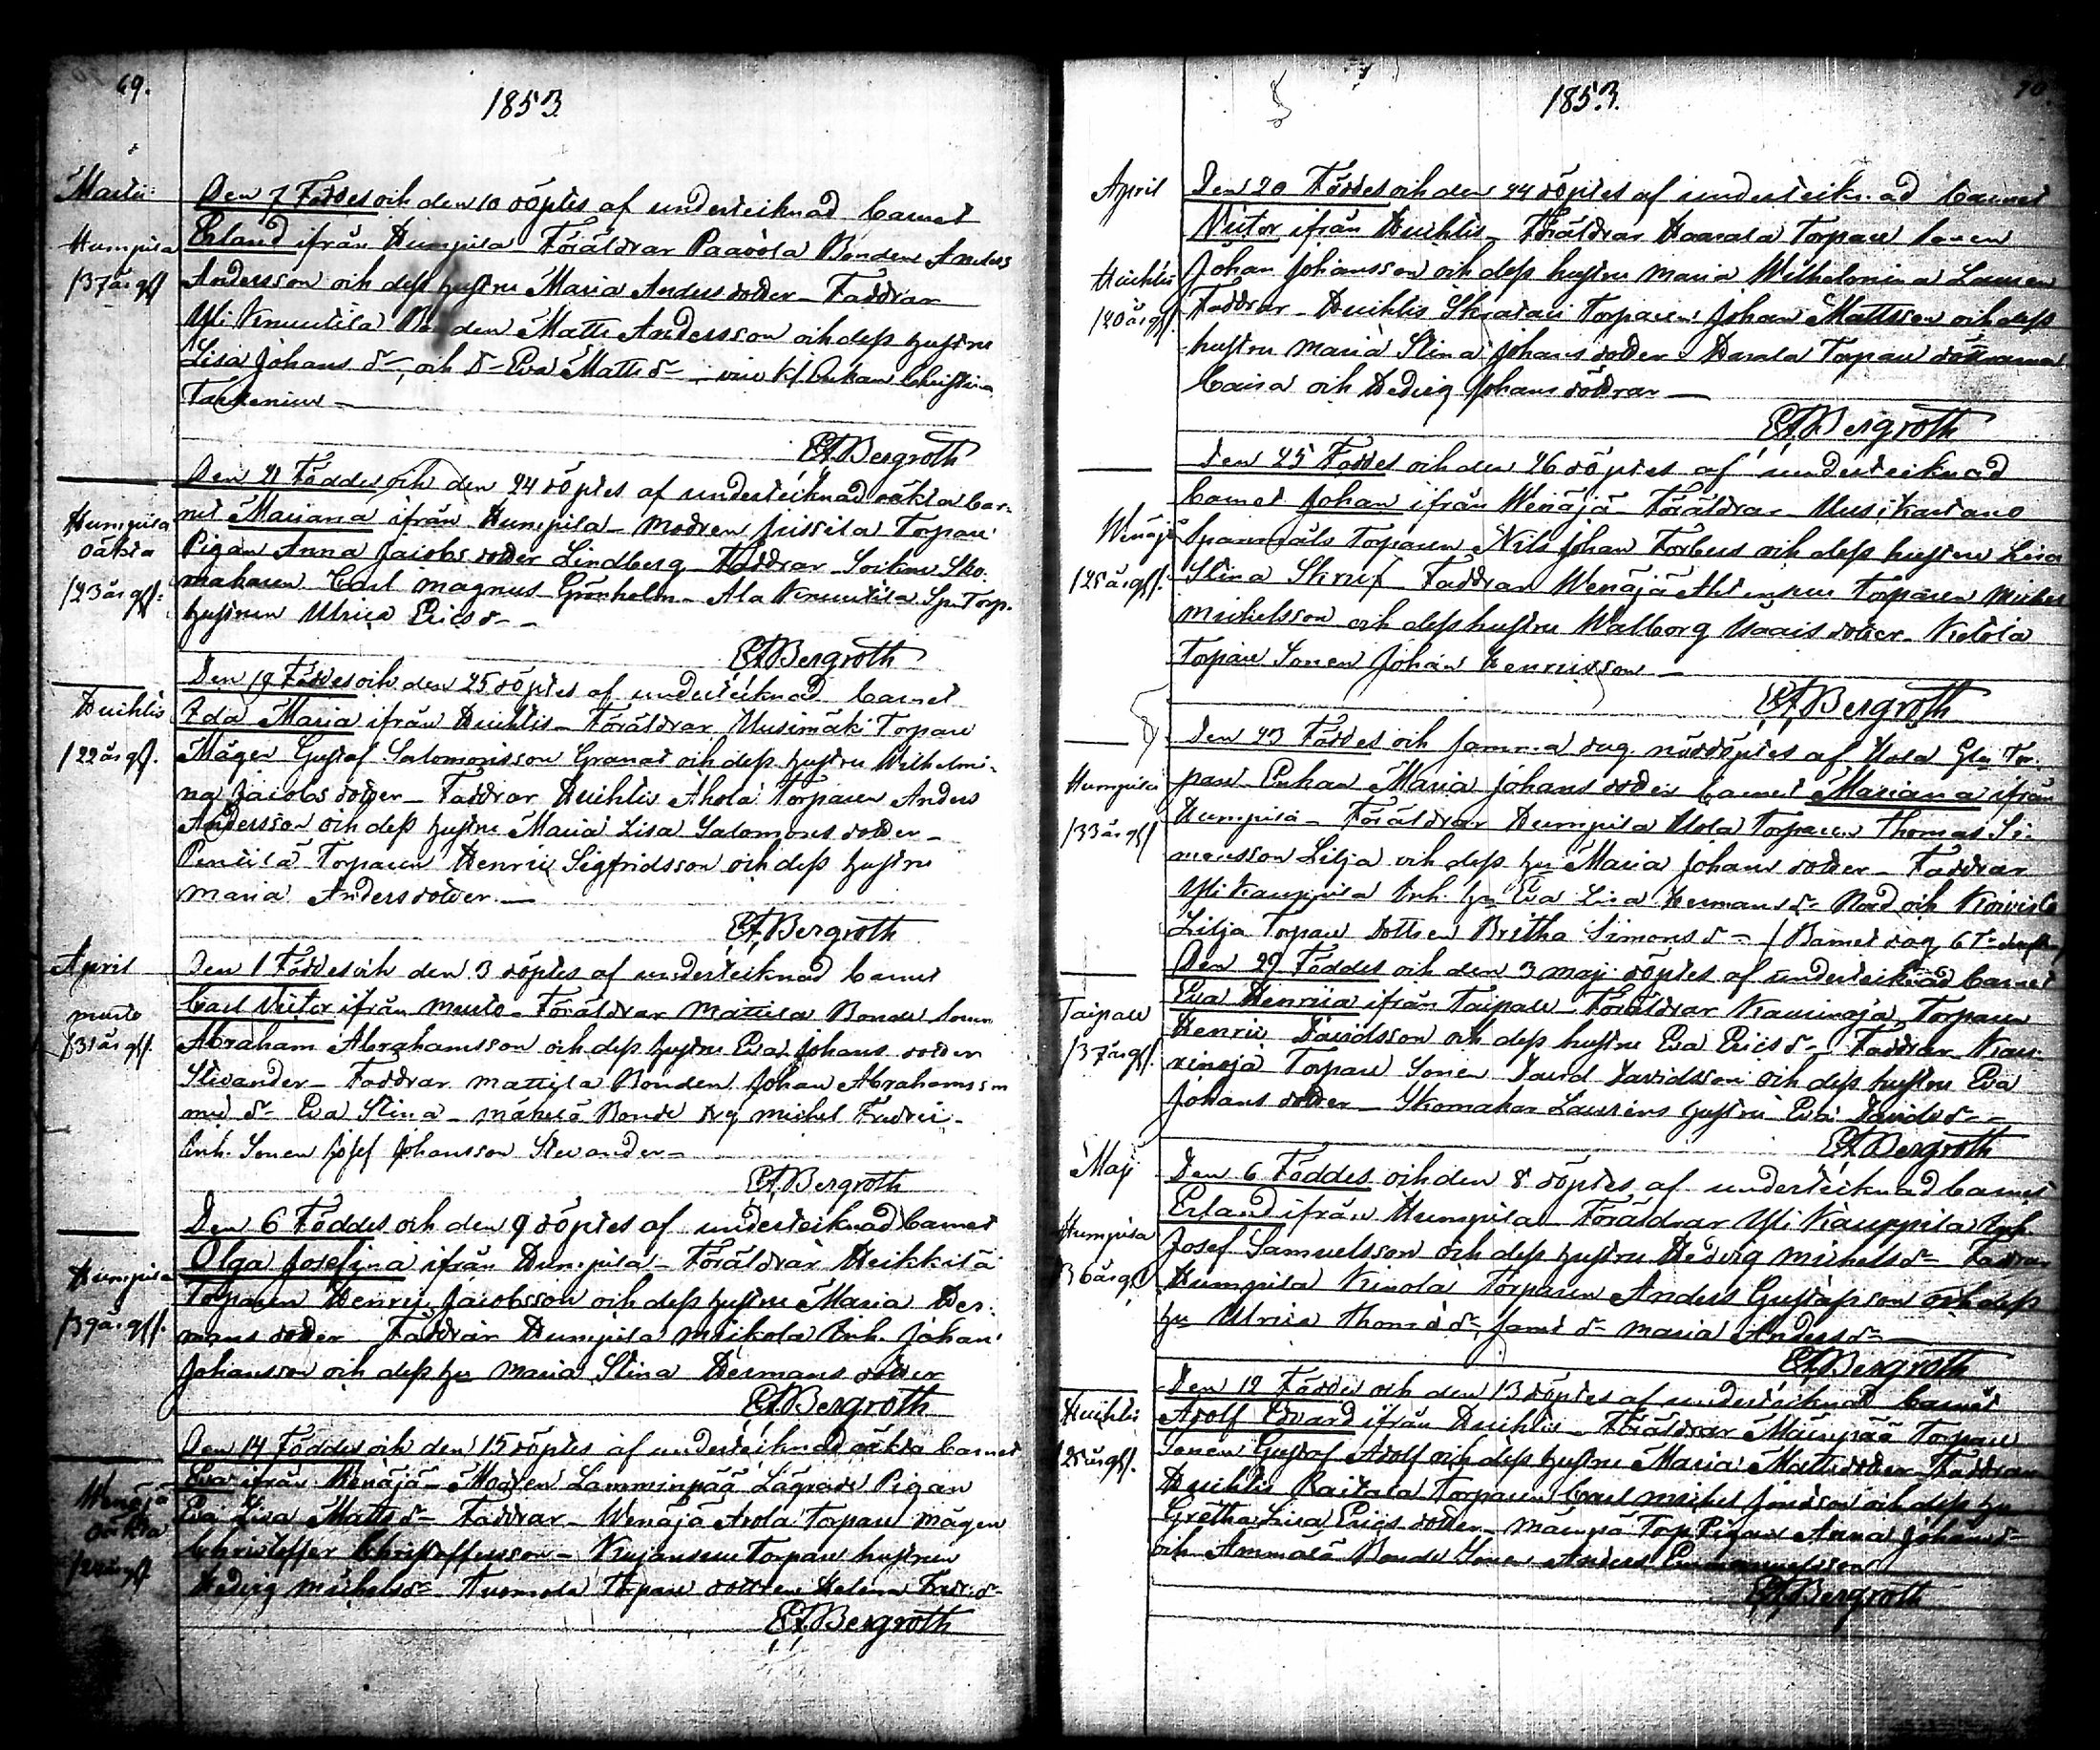 69.
1853.
Martii
Den 7 Föddes och den 10 döptes af undertecknad barnet
Humpila
Erland ifrån Humpila Föräldrar Paavola Bonden Anders
/37 år gl/
Andersson och dess hustru Maria Anders dotter – Faddrar
Yli Knuutila Bonden Matts Andersson och dess hustru
Lisa Johans d– och d– Eva Matts d– Enkan Christina
–
EABergroth
Den 21 Föddes och den 24 döptes af undertecknad oäkta bar-
Humpila
oäkta
net Mariana ifrån Humpila – modren Jussila Torpare
Pigan Anna Jacobs dotter Lindberg – Faddrar – Socken Sko-
/23 år gl/.
makaren Carl Magnus Grönholm – Ala Knuutila Sp: Torp.
hustrun Ulrica Erics d– –
EABergroth
Den 19 Föddes och den 25 döptes af undertecknad barnet
Huihtis
Ida Maria ifrån Huihtis – Föräldrar Uusimäki Torpare
/22 år gl/.
Mågen Gustaf Salomonsson Granat och dess hustru Wilhelmi-
na Jacobs dotter – Faddrar Huihtis Ahola Torparen Anders
Andersson och dess hustru Maria Lisa Salomons dotter –
Penttilä Torparen Henric Sigfridsson och dess hustru
Maria Anders dotter –
EABergroth
April
Den 1 Föddes och den 3 döptes af undertecknad barnet
Murto
Carl Victor ifrån Murto – Föräldrar Mattila Bonde sonen
/31 år gl/.
Abraham Abrahamsson och dess hustru Eva Johans dotter
Stevander – Faddrar Mattila Bonden Johan Abrahamsson
med d– Eva Stina – Bonde drg Michel Fredric
Inh. Sonen Josef Johansson Stevander –
EABergroth
Den 6 Föddes och den 9 döptes af undertecknad barnet
Humpila
Olga Josefina ifrån Humpila – Föräldrar Heikkilä
/39 år gl/.
Torparen Henric Jacobsson och dess hustru Maria Her-
mans dotter Faddrar Humpila Mikola Inh. Johan
Johansson och dess hu Maria Stina Hermans dotter
EABergroth
Den 14 Föddes och den 15 döptes af undertecknad oäkta barnet
Wenäjä
oäkta
Eva ifrån Wenäjä – Modren Lamminpää Lägrade Pigan
Eva Lisa Matts d– Faddrar – Wenäjä Arola Torpare mågen
Christoffer Christoffersson – Kujansuu Torpare hustrun
Hedvig Michels d– Tuomola Torpare dottren Helena Fredr. d–
EABergroth
70.
1853.
April
Den 20 Föddes och den 24 döptes af undertecknad barnet
Victor ifrån Huihtis – Föräldrar Haarala Torpare sonen
Huihtis
Johan Johansson och dess hustru Maria Wilhelmina Laurén
/20 år gl/.
Faddrar – Huihtis Skratari Torparen Johan Mattsson och dess
hustru Maria Stina Johans dotter – Torpare döttrarna
Caisa och Hedvig Johans döttrar –
EABergroth
Den 25 Föddes och den 26 döptes af undertecknad
barnet Johan ifrån Wenäjä – Föräldrar – Uusikartano
Wenäjä
Spannmåls Torparen Nils Johan Forbus och dess hustru Lisa
/25 år gl/.
Stina Skruf Faddrar Wenäjä Torparen Michel
Michelsson och dess hustru Walborg Isaacs dotter – Ketola
Torpare Sonen Johan Henricsson –
EABergroth
Den 23 Föddes och samma dag nöddöptes af Uola Torpare
Humpila
Enkan Maria Johans dotter barnet Mariana ifrån
/33 år gl/
Humpila – Föräldrar Humpila Uola Torparen Thomas Si-
monsson Lilja och dess hu Maria Johans dotter – Faddrar
Yli Kauppila Inh. hu Eva Lisa Hermans d– Nord och Koivisto
Lilja Torpare dottren Britha Simons d–
Den 29 Föddes och den 3 Maji döptes af undertecknad barnet
Taipale
Eva Henrica ifrån Taipale – Föräldrar Kauninoja Torparen
/37 år gl/.
Henric Davidsson och dess hustru Eva Erics d– Faddrar – Kau-
ninoja Torpare Sonen David Davidsson och dess hustru Eva
Johans dotter – Skomakar Lauréns hustru Eva Davids d– –
EABergroth
Maji
Den 6 Föddes och den 8 döptes af undertecknad barnet
Humpila
Erland ifrån Humpila – Föräldrar Yli Kauppila Inh.
36 år gl/
Josef Samuelsson och dess hustru Hedvig Michels d– Faddrar
Humpila Kimola Torparen Anders Gustafsson och dess
hu Ulrica Thomas d– samt d– Maria Anders d–
EABergroth
Den 12 Föddes och den 13 döptes af undertecknad barnet
Huihtis
Adolf Edvard ifrån Huihtis – Föräldrar Mäenpää Torpare
Sonen Gustaf Adolf och dess hustru Maria Matts dotter – Faddrar
Huihtis Raitala Torparen Carl Michel Jonasson och dess hu
Gretha Lisa Erics dotter – Mäenpä Torp. Pigan Anna Johans d–
och Ammalä Bonde Sonen Anders Emanuelsson
EABergroth